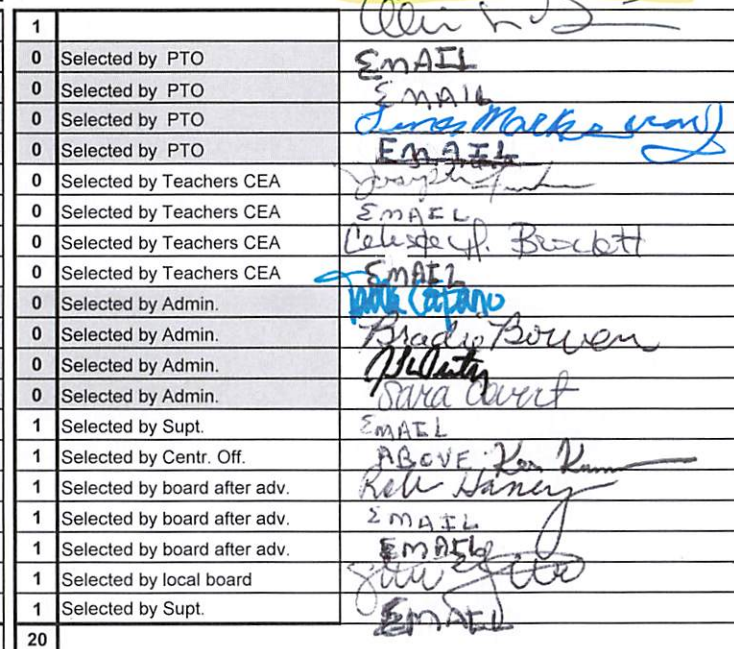 1
0 Selected by PTO EMAIL
0 Selected by PTO EMAIL
0 Selected by PTO
0 Selected by PTO EMAIL
0 Selected by Teachers CEA
0 Selected by Teachers CEA EMAIL
0 Selected by Teachers CEA Celeste H. Brockett
0 Selected by Teachers CEA EMAIL
0 Selected by Admin. Capano
0 Selected by Admin. Bradie Bowen
0 Selected by Admin.
0 Selected by Admin. Sara
1 Selected by Supt. EMAIL
1 Selected by Centr. Off. ABOVE Ken
1 Selected by board after adv. Haney
1 Selected by board after adv. EMAIL
1 Selected by board after adv. EMAIL
1 Selected by local board
1 Selected by Supt. EMAIL
20